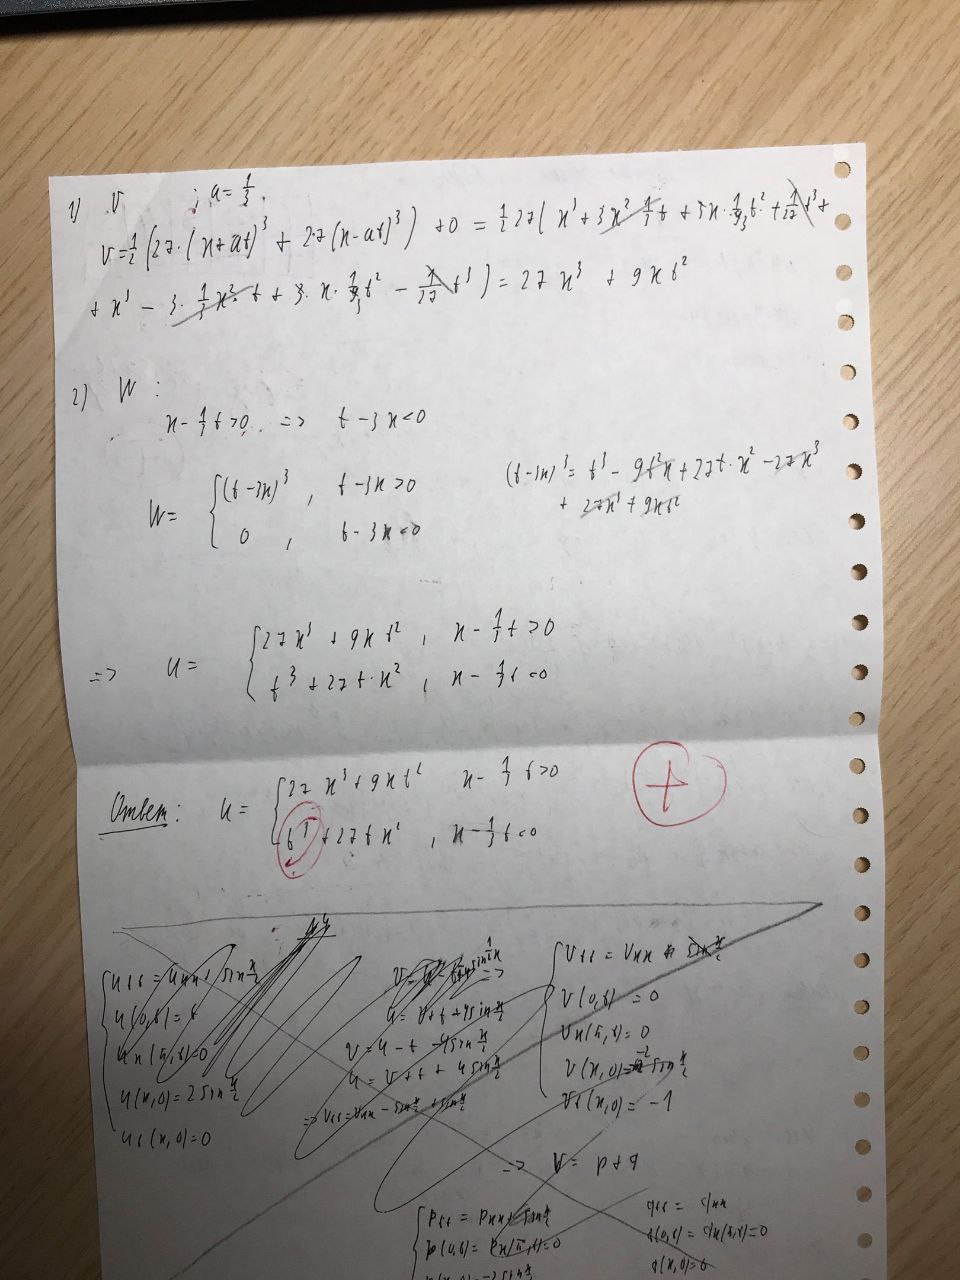 1) V ; a = 1/3.
V = 1/2 (27·(x+at)³ + 27(x-at)³) + 0 = 1/2 27( x³ + 3x² 1/3 t + 3x·1/9 t² + 1/27 t³ +
+ x³ - 3·1/3 x²·t + 3·x·1/9 t² - 1/27 t³ ) = 27x³ + 9xt²
2) W :
x - 1/3 t > 0 => t - 3x < 0
W = { (t-3x)³, t-3x > 0
0, t-3x < 0
(t-3x)³ = t³ - 9t²x + 27t·x² - 27x³
+ 27x³ + 9xt²
=> u = { 27x³ + 9xt², x - 1/3 t > 0
t³ + 27t·x², x - 1/3 t < 0
Ответ: u = { 27x³ + 9xt² x - 1/3 t > 0
t³ + 27tx², x - 1/3 t < 0
+
utt = uxx + sin x/2
u(0,t) = t
ux(π,t) = 0
u(x,0) = 2 sin x/2
ut(x,0) = 0
u = v + t + 4 sin x/2
v = u - t - 4 sin x/2
u = v + t + 4 sin x/2
=> vtt = vxx - sin x/2 + sin x/2
Vtt = Vxx
V(0,t) = 0
Vx(π,t) = 0
V(x,0) = -2 sin x/2
Vt(x,0) = -1
=> V = p + q
ptt = pxx + sin x/2
p(0,t) = px(π,t) = 0
qtt = qxx
q(0,t) = qx(π,t) = 0